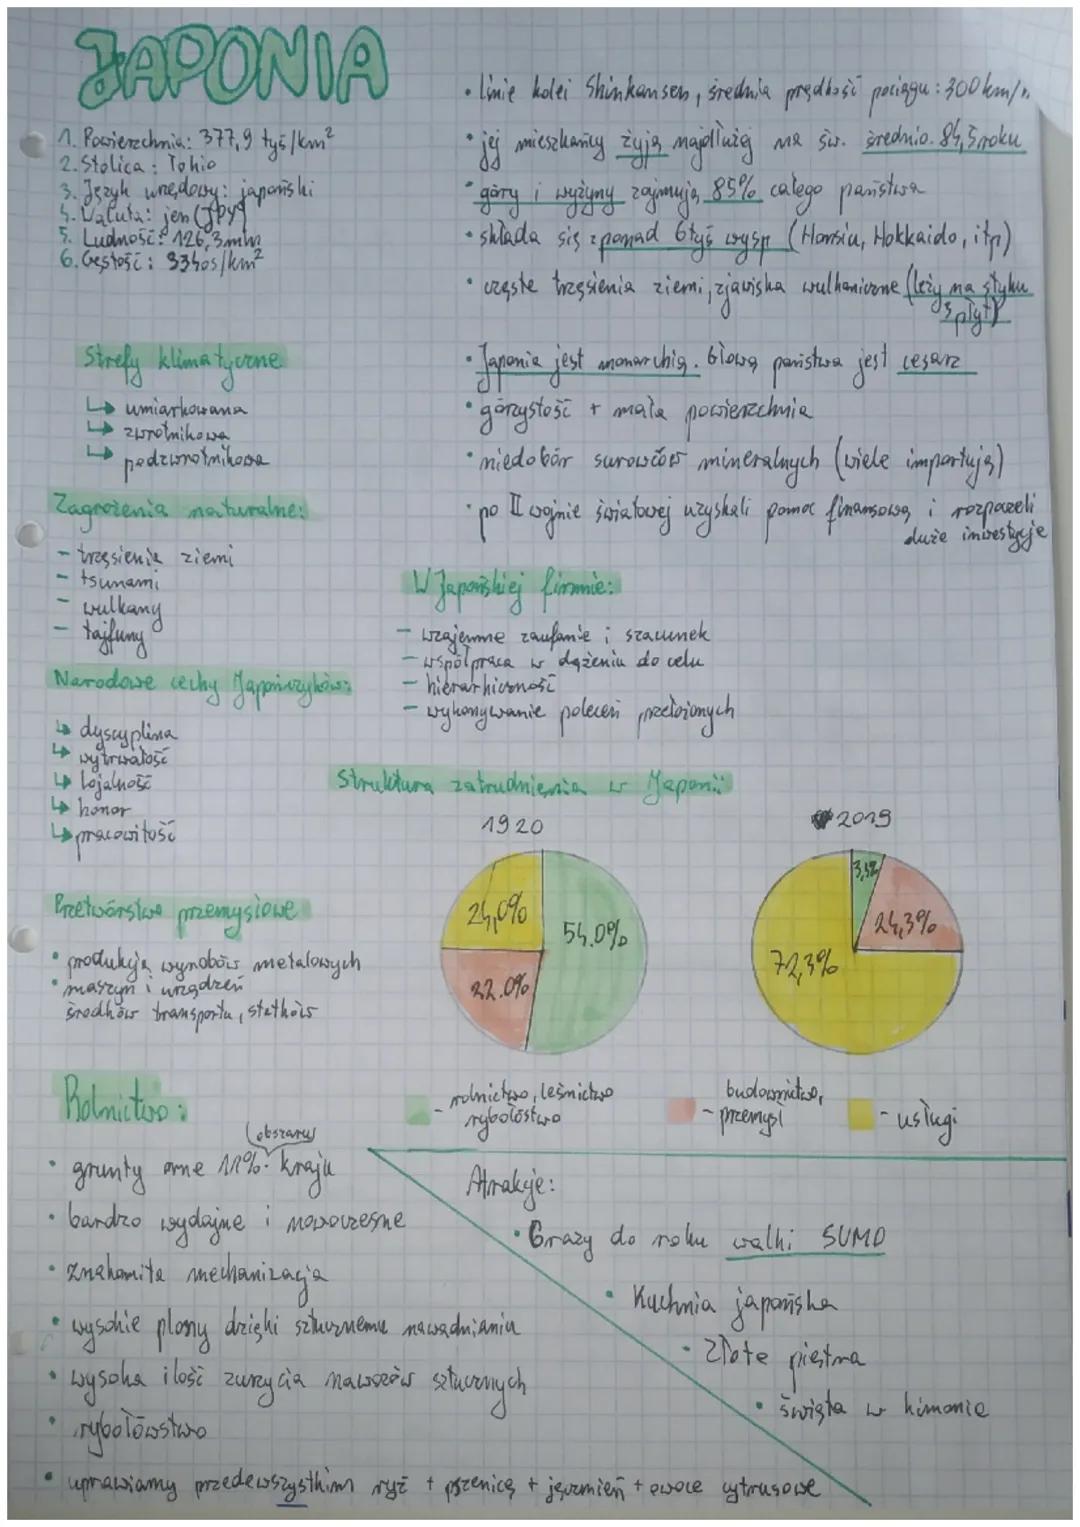 JAPONIA
1. Powierzchnia: 377,9 tyś/km²
2. Stolica: Tokio
3. Język urzędowy: japoński
4. Waluta: jen (JPY)
5. Ludność: 126,3 mln
6. Gęstość: 334os/km²
• linie kolei Shinkansen, średnia prędkość pociągu: 300 km/h
• jej mieszkańcy żyją najdłużej na św. średnio. 84,5 roku
• góry i wyżyny zajmują 85% całego państwa
• składa się z ponad 6tyś wysp (Honsiu, Hokkaido, itp)
• częste trzęsienia ziemi, zjawiska wulkaniczne (leży na styku
3 płyt)
• Japonia jest monarchią. Głową państwa jest cesarz
• górzystość + mała powierzchnia
• niedobór surowców mineralnych (wiele importują)
• po II wojnie światowej uzyskali pomoc finansową i rozpoczeli
duże inwestycje
Strefy klimatyczne
↳ umiarkowana
↳ zwrotnikowa
↳ podzwrotnikowa
Zagrożenia naturalne:
- trzęsienia ziemi
- tsunami
- wulkany
- tajfuny
Narodowe cechy Japończyków:
↳ dyscyplina
↳ wytrwałość
↳ lojalność
↳ honor
↳ pracowitość
W Japońskiej firmie:
- wzajemne zaufanie i szacunek
- współpraca w dążeniu do celu
- hierarhiczność
- wykonywanie poleceń przełożonych
Struktura zatrudnienia w Japonii
1920
2019
24,0%
54.0%
22.0%
3,5%
24,3%
72,3%
- rolnictwo, leśnictwo
rybołóstwo
budownictwo,
- przemysł
- usługi
Przetwórstwo przemysłowe
• produkcja wyrobów metalowych
• maszyn i urządzeń
środków transportu, statków
Rolnictwo:
(obszaru)
• grunty orne 11% kraju
• bardzo wydajne i nowoczesne
• znakomita mechanizacja
• wysokie plony dzięki sztucznemu nawadnianiu
• wysoka ilość zużycia nawozów sztucznych
• rybołówstwo
• uprawiamy przedewszystkim ryż + pszenicę + jęczmień + owoce cytrusowe
Atrakcje:
• 6 razy do roku walki SUMO
• Kuchnia japońska
• Złote piętra
• święta w kimonie